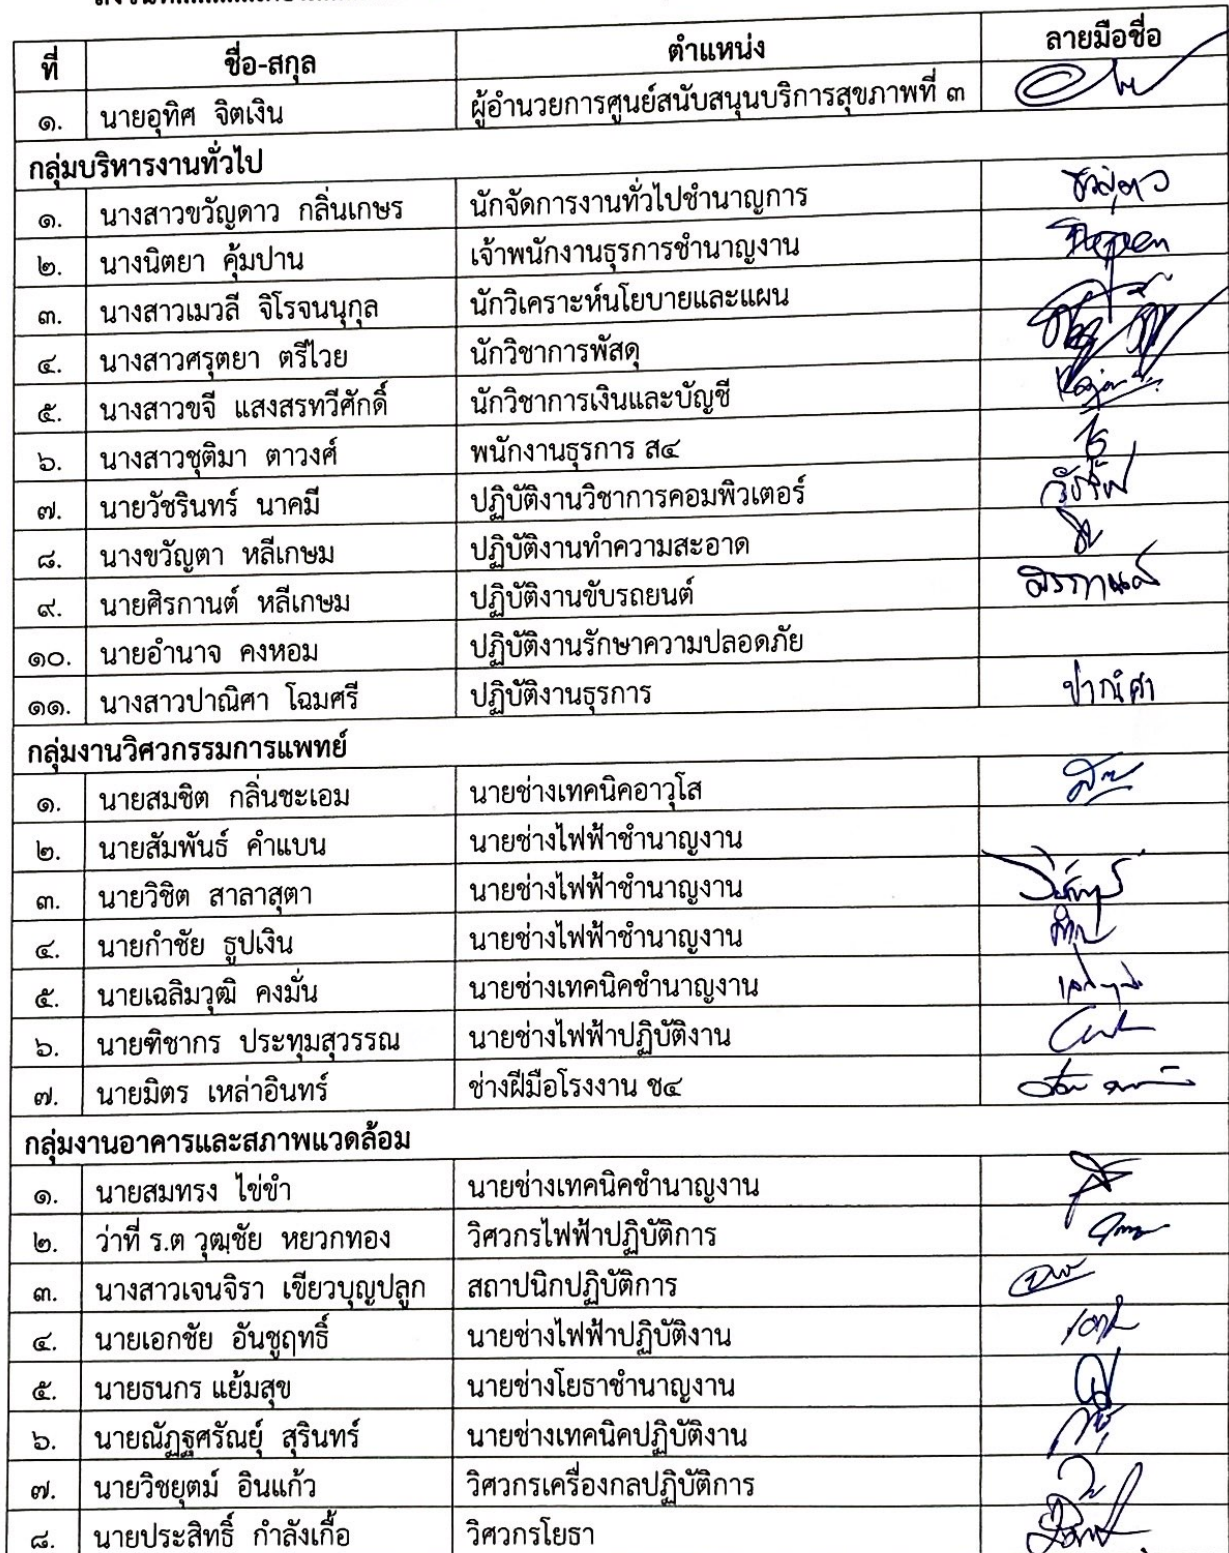 ที่ ชื่อ-สกุล ตำแหน่ง ลายมือชื่อ
๑. นายอุทิศ จิตเงิน ผู้อำนวยการศูนย์สนับสนุนบริการสุขภาพที่ ๓
กลุ่มบริหารงานทั่วไป
๑. นางสาวขวัญดาว กลิ่นเกษร นักจัดการงานทั่วไปชำนาญการ
๒. นางนิตยา คุ้มปาน เจ้าพนักงานธุรการชำนาญงาน
๓. นางสาวเมวลี จิโรจนนุกุล นักวิเคราะห์นโยบายและแผน
๔. นางสาวศรุตยา ตรีไวย นักวิชาการพัสดุ
๕. นางสาวขจี แสงสรทวีศักดิ์ นักวิชาการเงินและบัญชี
๖. นางสาวชุติมา ตาวงศ์ พนักงานธุรการ ส๔
๗. นายวัชรินทร์ นาคมี ปฏิบัติงานวิชาการคอมพิวเตอร์
๘. นางขวัญตา หลีเกษม ปฏิบัติงานทำความสะอาด
๙. นายศิรกานต์ หลีเกษม ปฏิบัติงานขับรถยนต์
๑๐. นายอำนาจ คงหอม ปฏิบัติงานรักษาความปลอดภัย
๑๑. นางสาวปาณิศา โฉมศรี ปฏิบัติงานธุรการ ปาณิศา
กลุ่มงานวิศวกรรมการแพทย์
๑. นายสมชิต กลิ่นชะเอม นายช่างเทคนิคอาวุโส
๒. นายสัมพันธ์ คำแบน นายช่างไฟฟ้าชำนาญงาน
๓. นายวิชิต สาลาสุตา นายช่างไฟฟ้าชำนาญงาน
๔. นายกำชัย ธูปเงิน นายช่างไฟฟ้าชำนาญงาน
๕. นายเฉลิมวุฒิ คงมั่น นายช่างเทคนิคชำนาญงาน
๖. นายฑิชากร ประทุมสุวรรณ นายช่างไฟฟ้าปฏิบัติงาน
๗. นายมิตร เหล่าอินทร์ ช่างฝีมือโรงงาน ช๔
กลุ่มงานอาคารและสภาพแวดล้อม
๑. นายสมทรง ไข่ขำ นายช่างเทคนิคชำนาญงาน
๒. ว่าที่ ร.ต วุฒฺชัย หยวกทอง วิศวกรไฟฟ้าปฏิบัติการ
๓. นางสาวเจนจิรา เขียวบุญปลูก สถาปนิกปฏิบัติการ
๔. นายเอกชัย อันชูฤทธิ์ นายช่างไฟฟ้าปฏิบัติงาน
๕. นายธนกร แย้มสุข นายช่างโยธาชำนาญงาน
๖. นายณัฏฐศรัณยุ์ สุรินทร์ นายช่างเทคนิคปฏิบัติงาน
๗. นายวิชยุตม์ อินแก้ว วิศวกรเครื่องกลปฏิบัติการ
๘. นายประสิทธิ์ กำลังเกื้อ วิศวกรโยธา